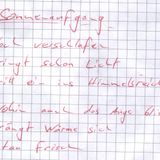 Sonnenaufgang
och verschlafen
ringt schon Licht
ritt ein ins Himmelreich
ohin auch das Auge
rängt Wärme sich
tau frisch